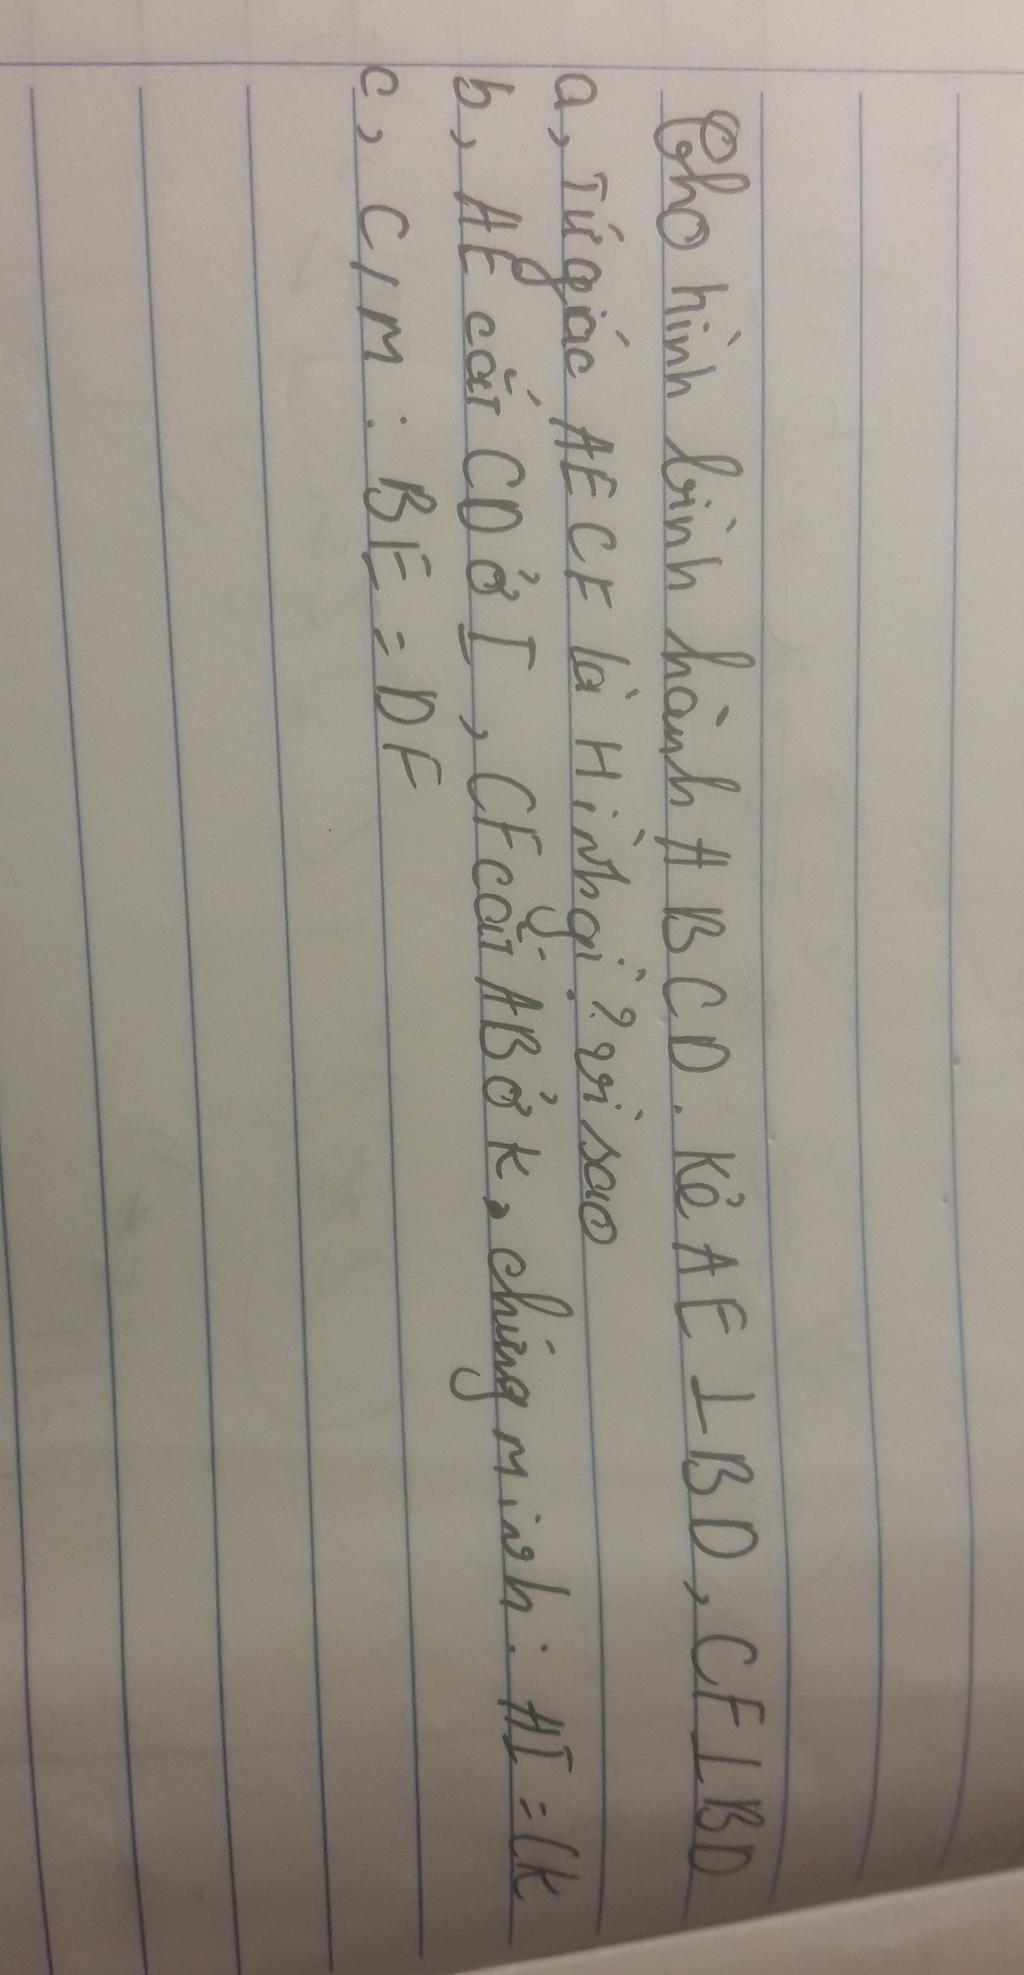 Cho hình bình hành ABCD. Kẻ AE ⊥ BD, CF ⊥ BD
a, Tứ giác AECF là Hình gì? vì sao
b, AE cắt CD ở I, CF cắt AB ở K, chứng minh: AI = CK
c, C/M: BE = DF